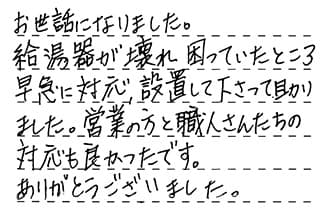 お世話になりました。
給湯器が壊れ困っていたところ
早急に対応,設置して下さって助かり
ました。営業の方と職人さんたちの
対応も良かったです。
ありがとうございました。